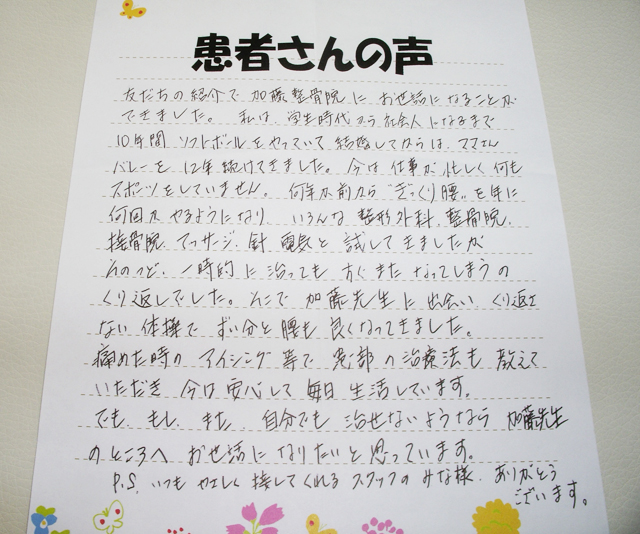 患者さんの声
友だちの紹介で 加藤整骨院に お世話になることが
できました。 私は 学生時代から社会人になるまで
10年間 ソフトボールをやっていて 結婚してからは、ママさん
バレーを 12年続けてきました。 今は 仕事が 忙しく 何も
スポーツをしていません。 何年か前から "ぎっくり腰" を 年に
何回か やるようになり、いろんな 整形外科、整骨院、
接骨院、マッサージ、針、電気と 試してきましたが
そのつど、一時的に治っても すぐまた なってしまうの
くり返しでした。 そこで 加藤先生に 出会い くり返さ
ない 体操で ずい分と 腰も 良くなってきました。
痛めた時の アイシング 等で 患部の治療法も 教えて
いただき 今は 安心して 毎日 生活しています。
でも、もし、また 自分でも 治せないようなら 加藤先生
のところへ お世話に なりたいと 思っています。
P.S. いつも やさしく 接してくれる スタッフの みな様、ありがとう
ございます。